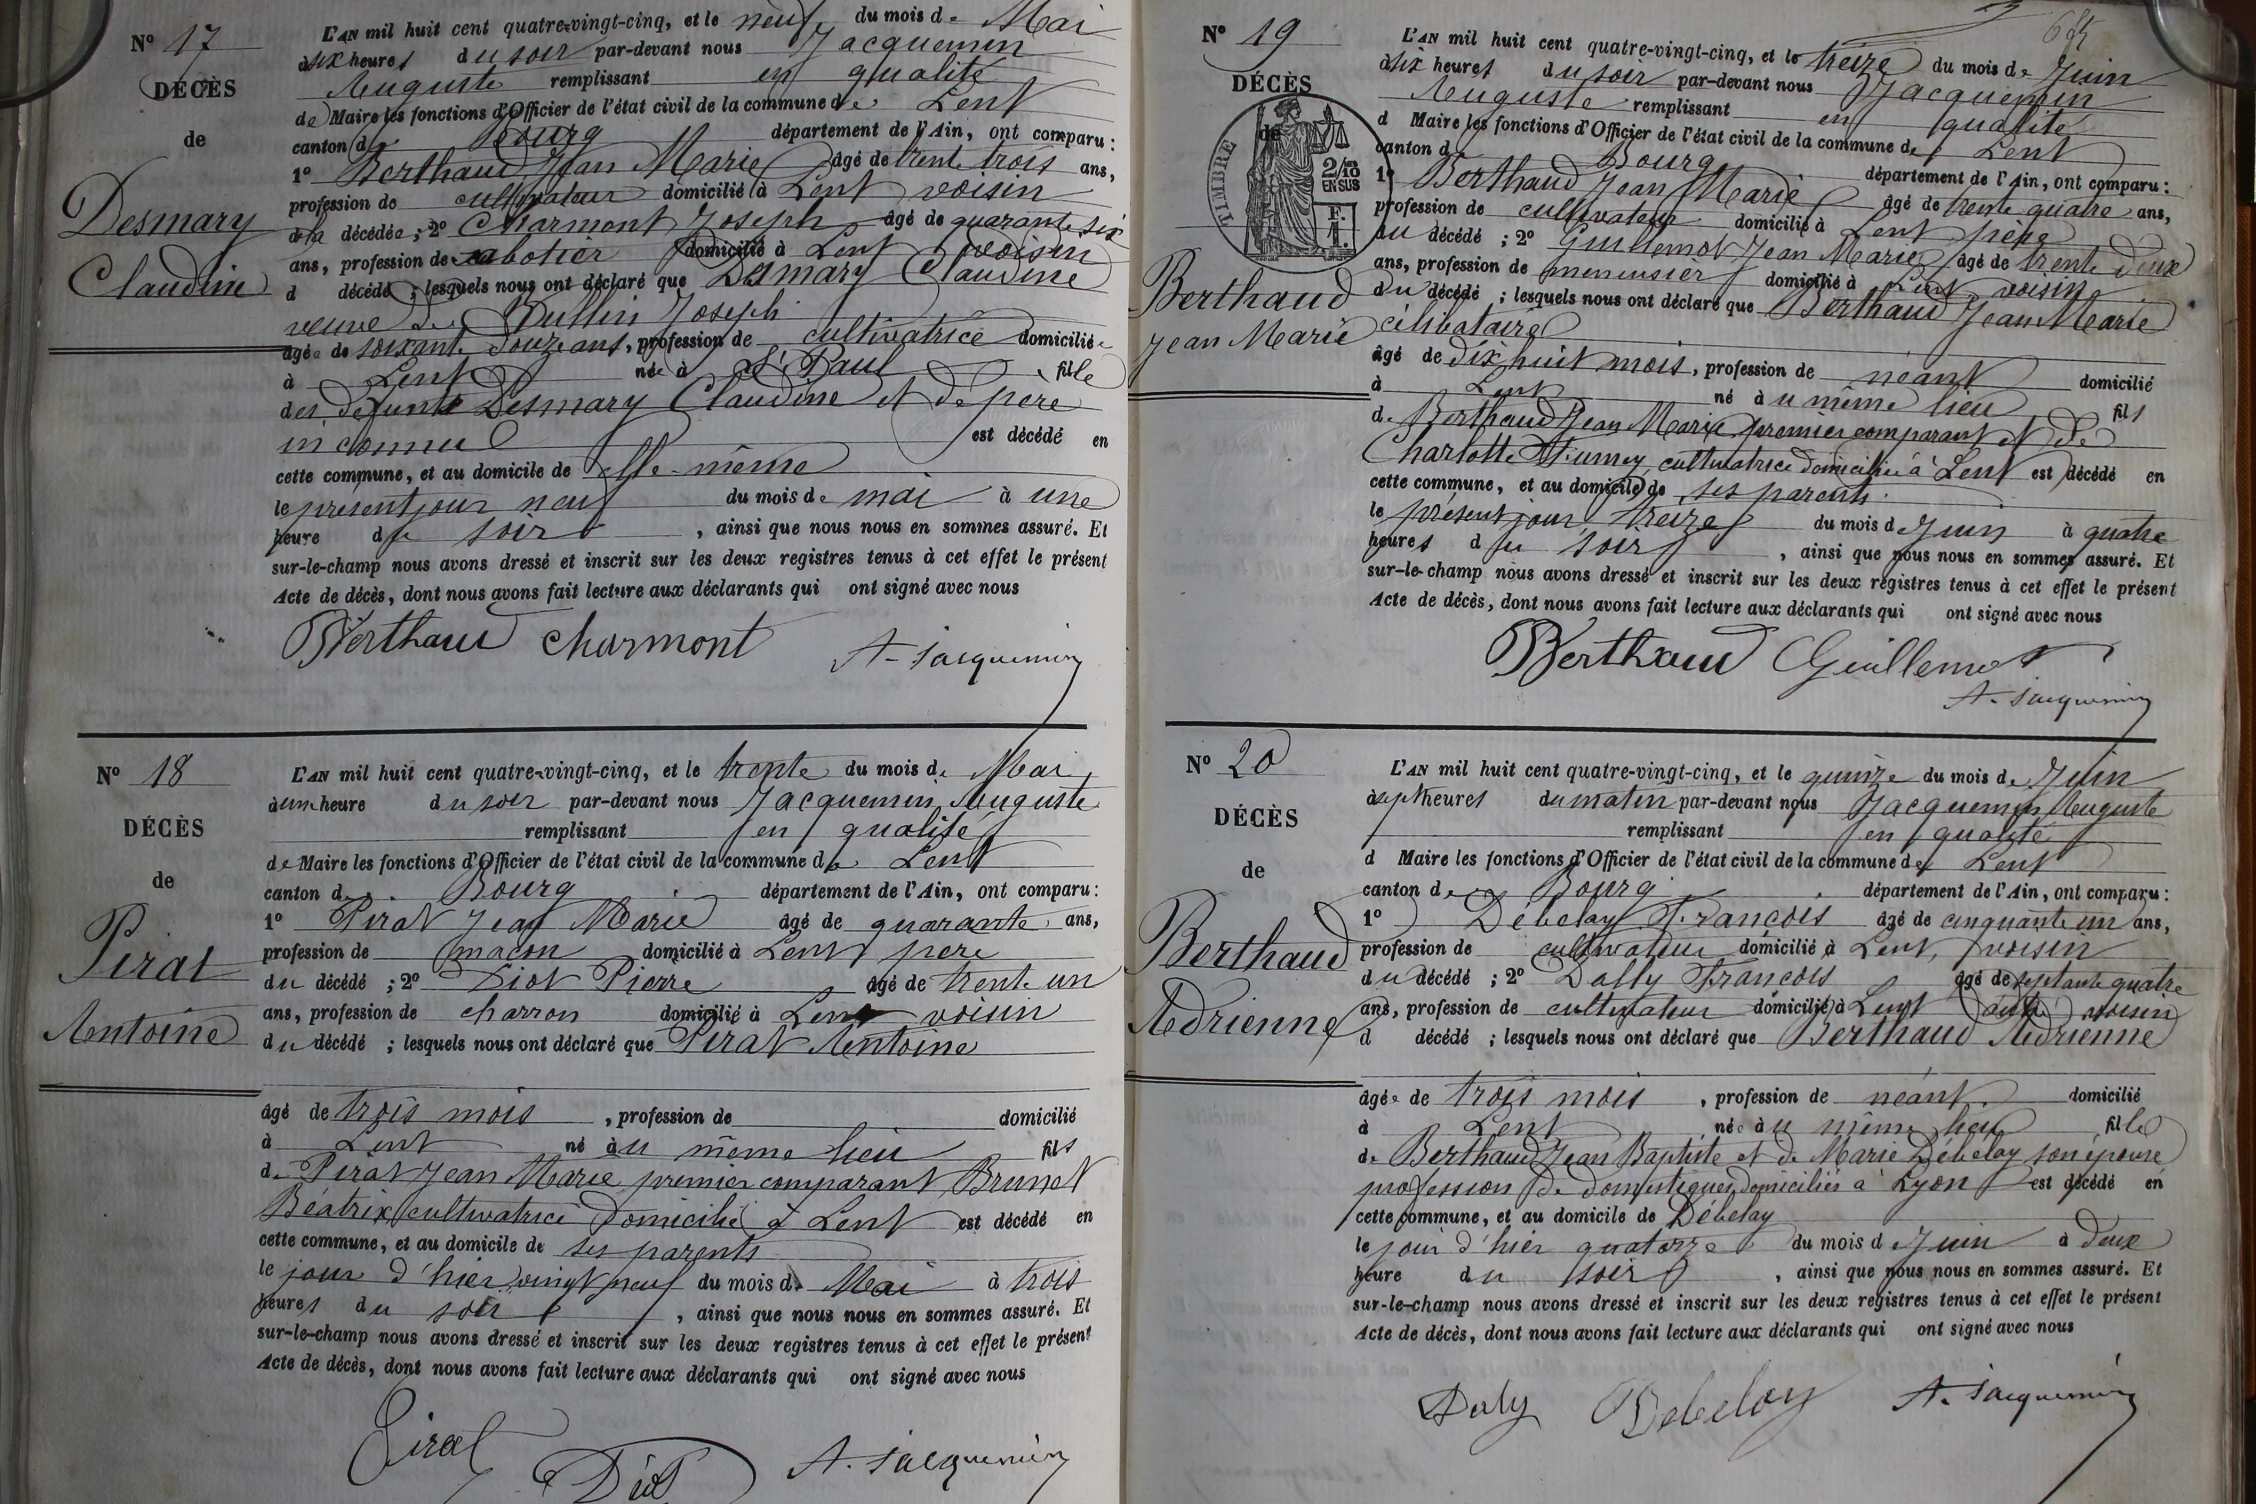 N° 17
DÉCÈS
de
Desmary
Claudine
L'AN mil huit cent quatre-vingt-cinq, et le neuf du mois de Mai
à six heures du soir par-devant nous Jacquemin
Auguste remplissant en qualité
de Maire les fonctions d'Officier de l'état civil de la commune de Lent
canton de Bourg département de l'Ain, ont comparu :
1° Berthaud Jean Marie âgé de trente trois ans,
profession de cultivateur domicilié à Lent voisin
de la décédée ; 2° Charmont Joseph âgé de quarante six
ans, profession de sabotier domicilié à Lent voisin
d décédé ; lesquels nous ont déclaré que Desmary Claudine
veuve de Dullin Joseph
âgée de soixante douze ans, profession de cultivatrice domiciliée
à Lent née à St Paul fille
des défunts Desmary Claudine et de père
inconnu est décédé en
cette commune, et au domicile de elle-même
le présent jour neuf du mois de mai à une
heure du soir , ainsi que nous nous en sommes assuré. Et
sur-le-champ nous avons dressé et inscrit sur les deux registres tenus à cet effet le présent
Acte de décès, dont nous avons fait lecture aux déclarants qui ont signé avec nous
Berthaud Charmont A. Jacquemin
N° 18
DÉCÈS
de
Pirat
Antoine
L'AN mil huit cent quatre-vingt-cinq, et le trente du mois de Mai
à une heure du soir par-devant nous Jacquemin Auguste
remplissant en qualité
de Maire les fonctions d'Officier de l'état civil de la commune de Lent
canton de Bourg département de l'Ain, ont comparu :
1° Pirat Jean Marie âgé de quarante ans,
profession de maçon domicilié à Lent père
du décédé ; 2° Diot Pierre âgé de trente un
ans, profession de charron domicilié à Lent voisin
du décédé ; lesquels nous ont déclaré que Pirat Antoine
âgé de trois mois , profession de domicilié
à Lent né àu même lieu fils
de Pirat Jean Marie premier comparant Brunet
Béatrix cultivatrice domicilié à Lent est décédé en
cette commune, et au domicile de ses parents
le jour d'hier vingt neuf du mois de Mai à trois
heures du soir , ainsi que nous nous en sommes assuré. Et
sur-le-champ nous avons dressé et inscrit sur les deux registres tenus à cet effet le présent
Acte de décès, dont nous avons fait lecture aux déclarants qui ont signé avec nous
Pirat Diot A. Jacquemin
N° 19
DÉCÈS
de
TIMBRE
2/10
EN SUS
F.
1.
Berthaud
Jean Marie
L'AN mil huit cent quatre-vingt-cinq, et le treize du mois de Juin
à six heures du soir par-devant nous Jacquemin
Auguste remplissant en qualité
d Maire les fonctions d'Officier de l'état civil de la commune de Lent
canton de Bourg département de l'Ain, ont comparu :
1° Berthaud Jean Marie âgé de trente quatre ans,
profession de cultivateur domicilié à Lent père
du décédé ; 2° Guillemot Jean Marie âgé de trente deux
ans, profession de menuisier domicilié à Lent voisin
du décédé ; lesquels nous ont déclaré que Berthaud Jean Marie
célibataire
âgé de dix huit mois, profession de néant domicilié
à Lent né àu même lieu fils
de Berthaud Jean Marie premier comparant et de
Charlotte cultivatrice domiciliée à Lent est décédé en
cette commune, et au domicile de ses parents
le présent jour treize du mois de Juin à quatre
heures du soir , ainsi que nous nous en sommes assuré. Et
sur-le-champ nous avons dressé et inscrit sur les deux registres tenus à cet effet le présent
Acte de décès, dont nous avons fait lecture aux déclarants qui ont signé avec nous
Berthaud Guillemot
A. Jacquemin
N° 20
DÉCÈS
de
Berthaud
Adrienne
L'AN mil huit cent quatre-vingt-cinq, et le quinze du mois de Juin
à sept heures du matin par-devant nous Jacquemin Auguste
remplissant en qualité
d Maire les fonctions d'Officier de l'état civil de la commune de Lent
canton de Bourg département de l'Ain, ont comparu :
1° Débelay François âgé de cinquante un ans,
profession de cultivateur domicilié à Lent, voisin
du décédé ; 2° Dally François âgé de septante quatre
ans, profession de cultivateur domicilié à Lent voisin
d décédé ; lesquels nous ont déclaré que Berthaud Adrienne
âgée de trois mois , profession de néant domicilié
à Lent née àu même lieu fille
de Berthaud Jean Baptiste et de Marie Débelay son épouse
profession de domestiques domiciliés à Lyon est décédé en
cette commune, et au domicile de Débelay
le jour d'hier quatorze du mois de Juin à deux
heure du soir , ainsi que nous nous en sommes assuré. Et
sur-le-champ nous avons dressé et inscrit sur les deux registres tenus à cet effet le présent
Acte de décès, dont nous avons fait lecture aux déclarants qui ont signé avec nous
Daly Debelay A. Jacquemin